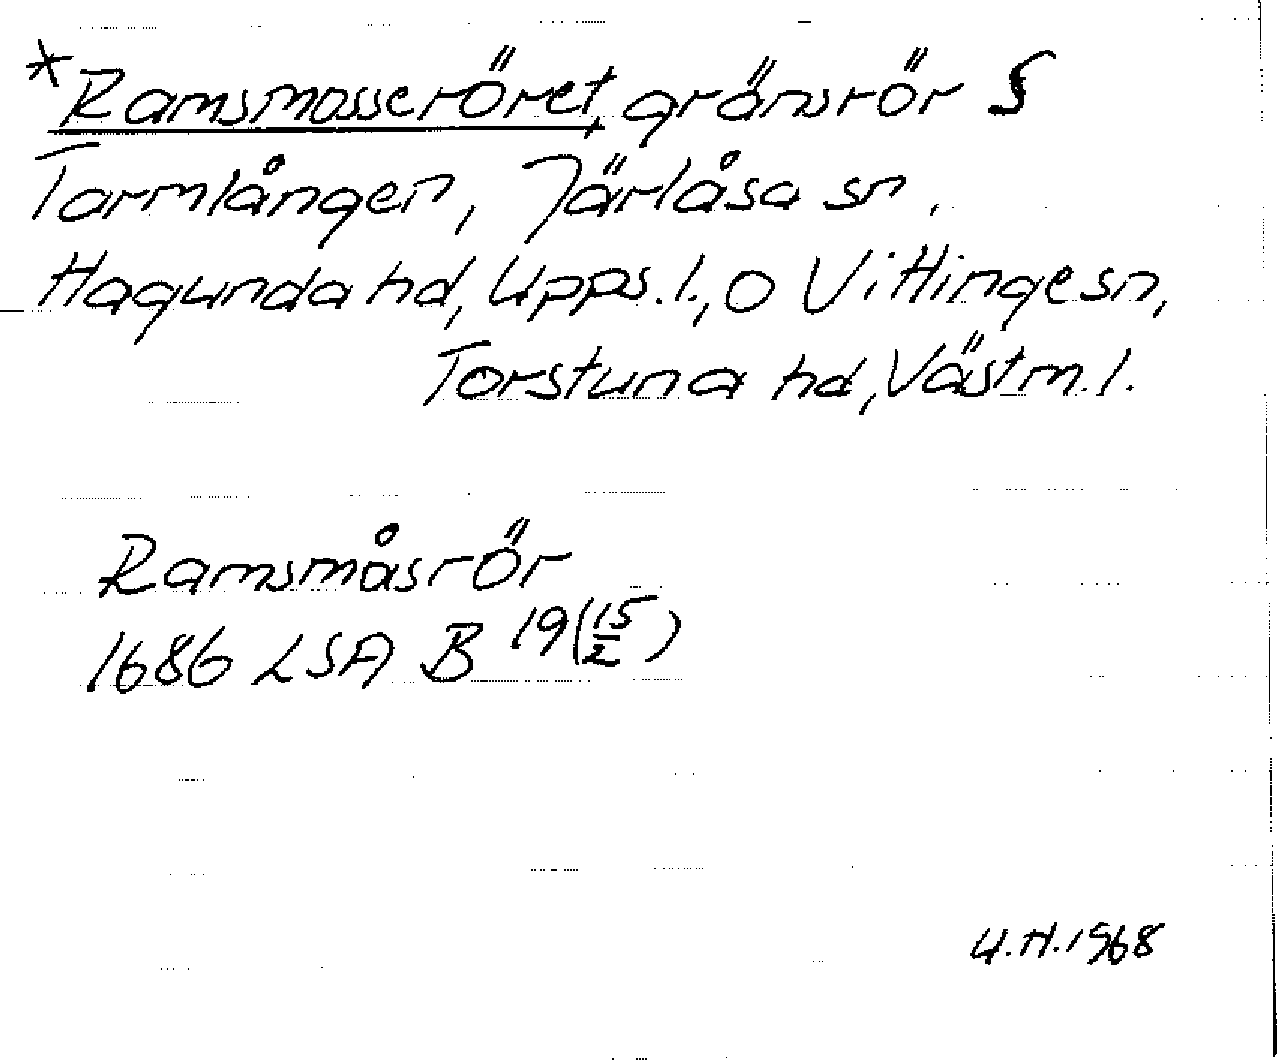 *Ramsmosseröret, gränsrör S
Tarmlången, Järlåsa sn,
Hagunda hd, Upps. l., O Vittinge sn,
Torstuna hd, Västm. l.
Ramsmåsrör
1686 LSA B 19(15/2)
U.H. 1968